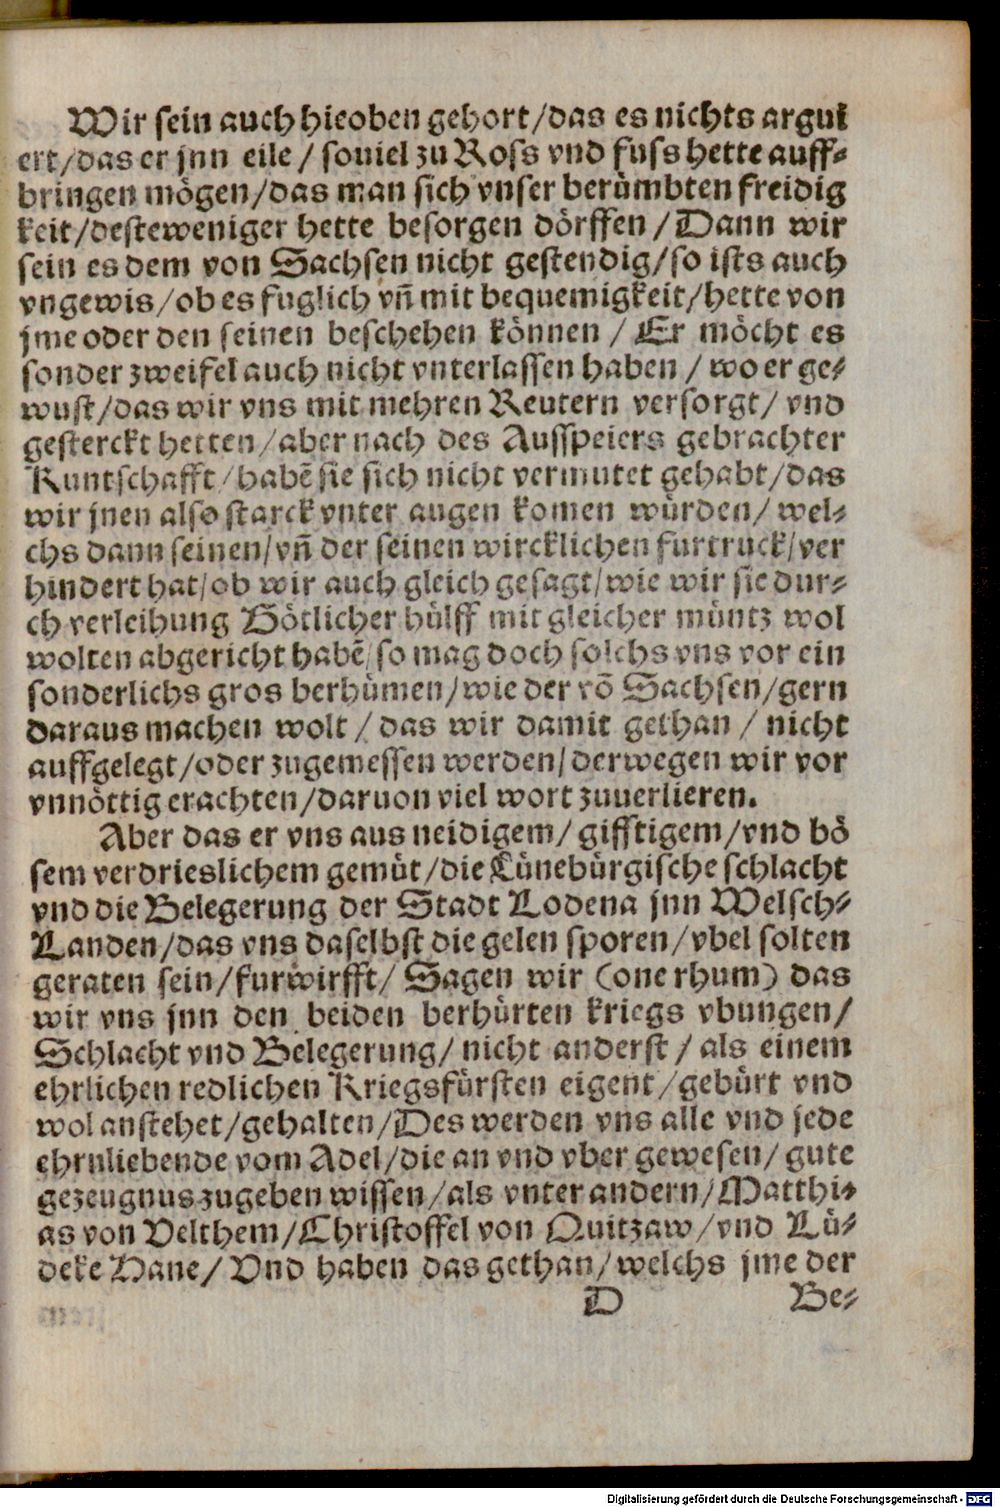 Wir sein auch hieoben gehort/das es nichts argui
ert/das er jnn eile/souiel zu Ross vnd fuss hette auff-
bringen mögen/das man sich vnser berümbten freidig
keit/desteweniger hette besorgen dörffen/Dann wir
sein es dem von Sachsen nicht gestendig/so ists auch
vngewis/ob es fuglich vñ mit bequemigkeit/hette von
jme oder den seinen beschehen können/Er möcht es
sonder zweifel auch nicht vnterlassen haben/wo er ge-
wust/das wir vns mit mehren Reutern versorgt/vnd
gesterckt hetten/aber nach des Ausspeiers gebrachter
Kuntschafft/habẽ sie sich nicht vermutet gehabt/das
wir jnen also starck vnter augen komen würden/wel-
chs dann seinen/vñ der seinen wircklichen furtruck/ver
hindert hat/ob wir auch gleich gesagt/wie wir sie dur-
ch verleihung Götlicher hülff mit gleicher müntz wol
wolten abgericht habẽ/so mag doch solchs vns vor ein
sonderlichs gros berhümen/wie der võ Sachsen/gern
daraus machen wolt/das wir damit gethan/nicht
auffgelegt/oder zugemessen werden/derwegen wir vor
vnnöttig erachten/daruon viel wort zuuerlieren.
Aber das er vns aus neidigem/gifftigem/vnd bö
sem verdrieslichem gemüt/die Lüneburgische schlacht
vnd die Belegerung der Stadt Lodena jnn Welsch-
Landen/das vns daselbst die gelen sporen/vbel solten
geraten sein/furwirfft/Sagen wir (one rhum) das
wir vns jnn den beiden berhürten kriegs vbungen/
Schlacht vnd Belegerung/nicht anderst/als einem
ehrlichen redlichen Kriegsfürsten eigent/gebürt vnd
wol anstehet/gehalten/Des werden vns alle vnd jede
ehrnliebende vom Adel/die an vnd vber gewesen/gute
gezeugnus zugeben wissen/als vnter andern/Matthi-
as von Velthem/Christoffel von Quitzaw/vnd Lü-
deke Hane/Vnd haben das gethan/welchs jme der
D Be-
Digitalisierung gefördert durch die Deutsche Forschungsgemeinschaft - DFG